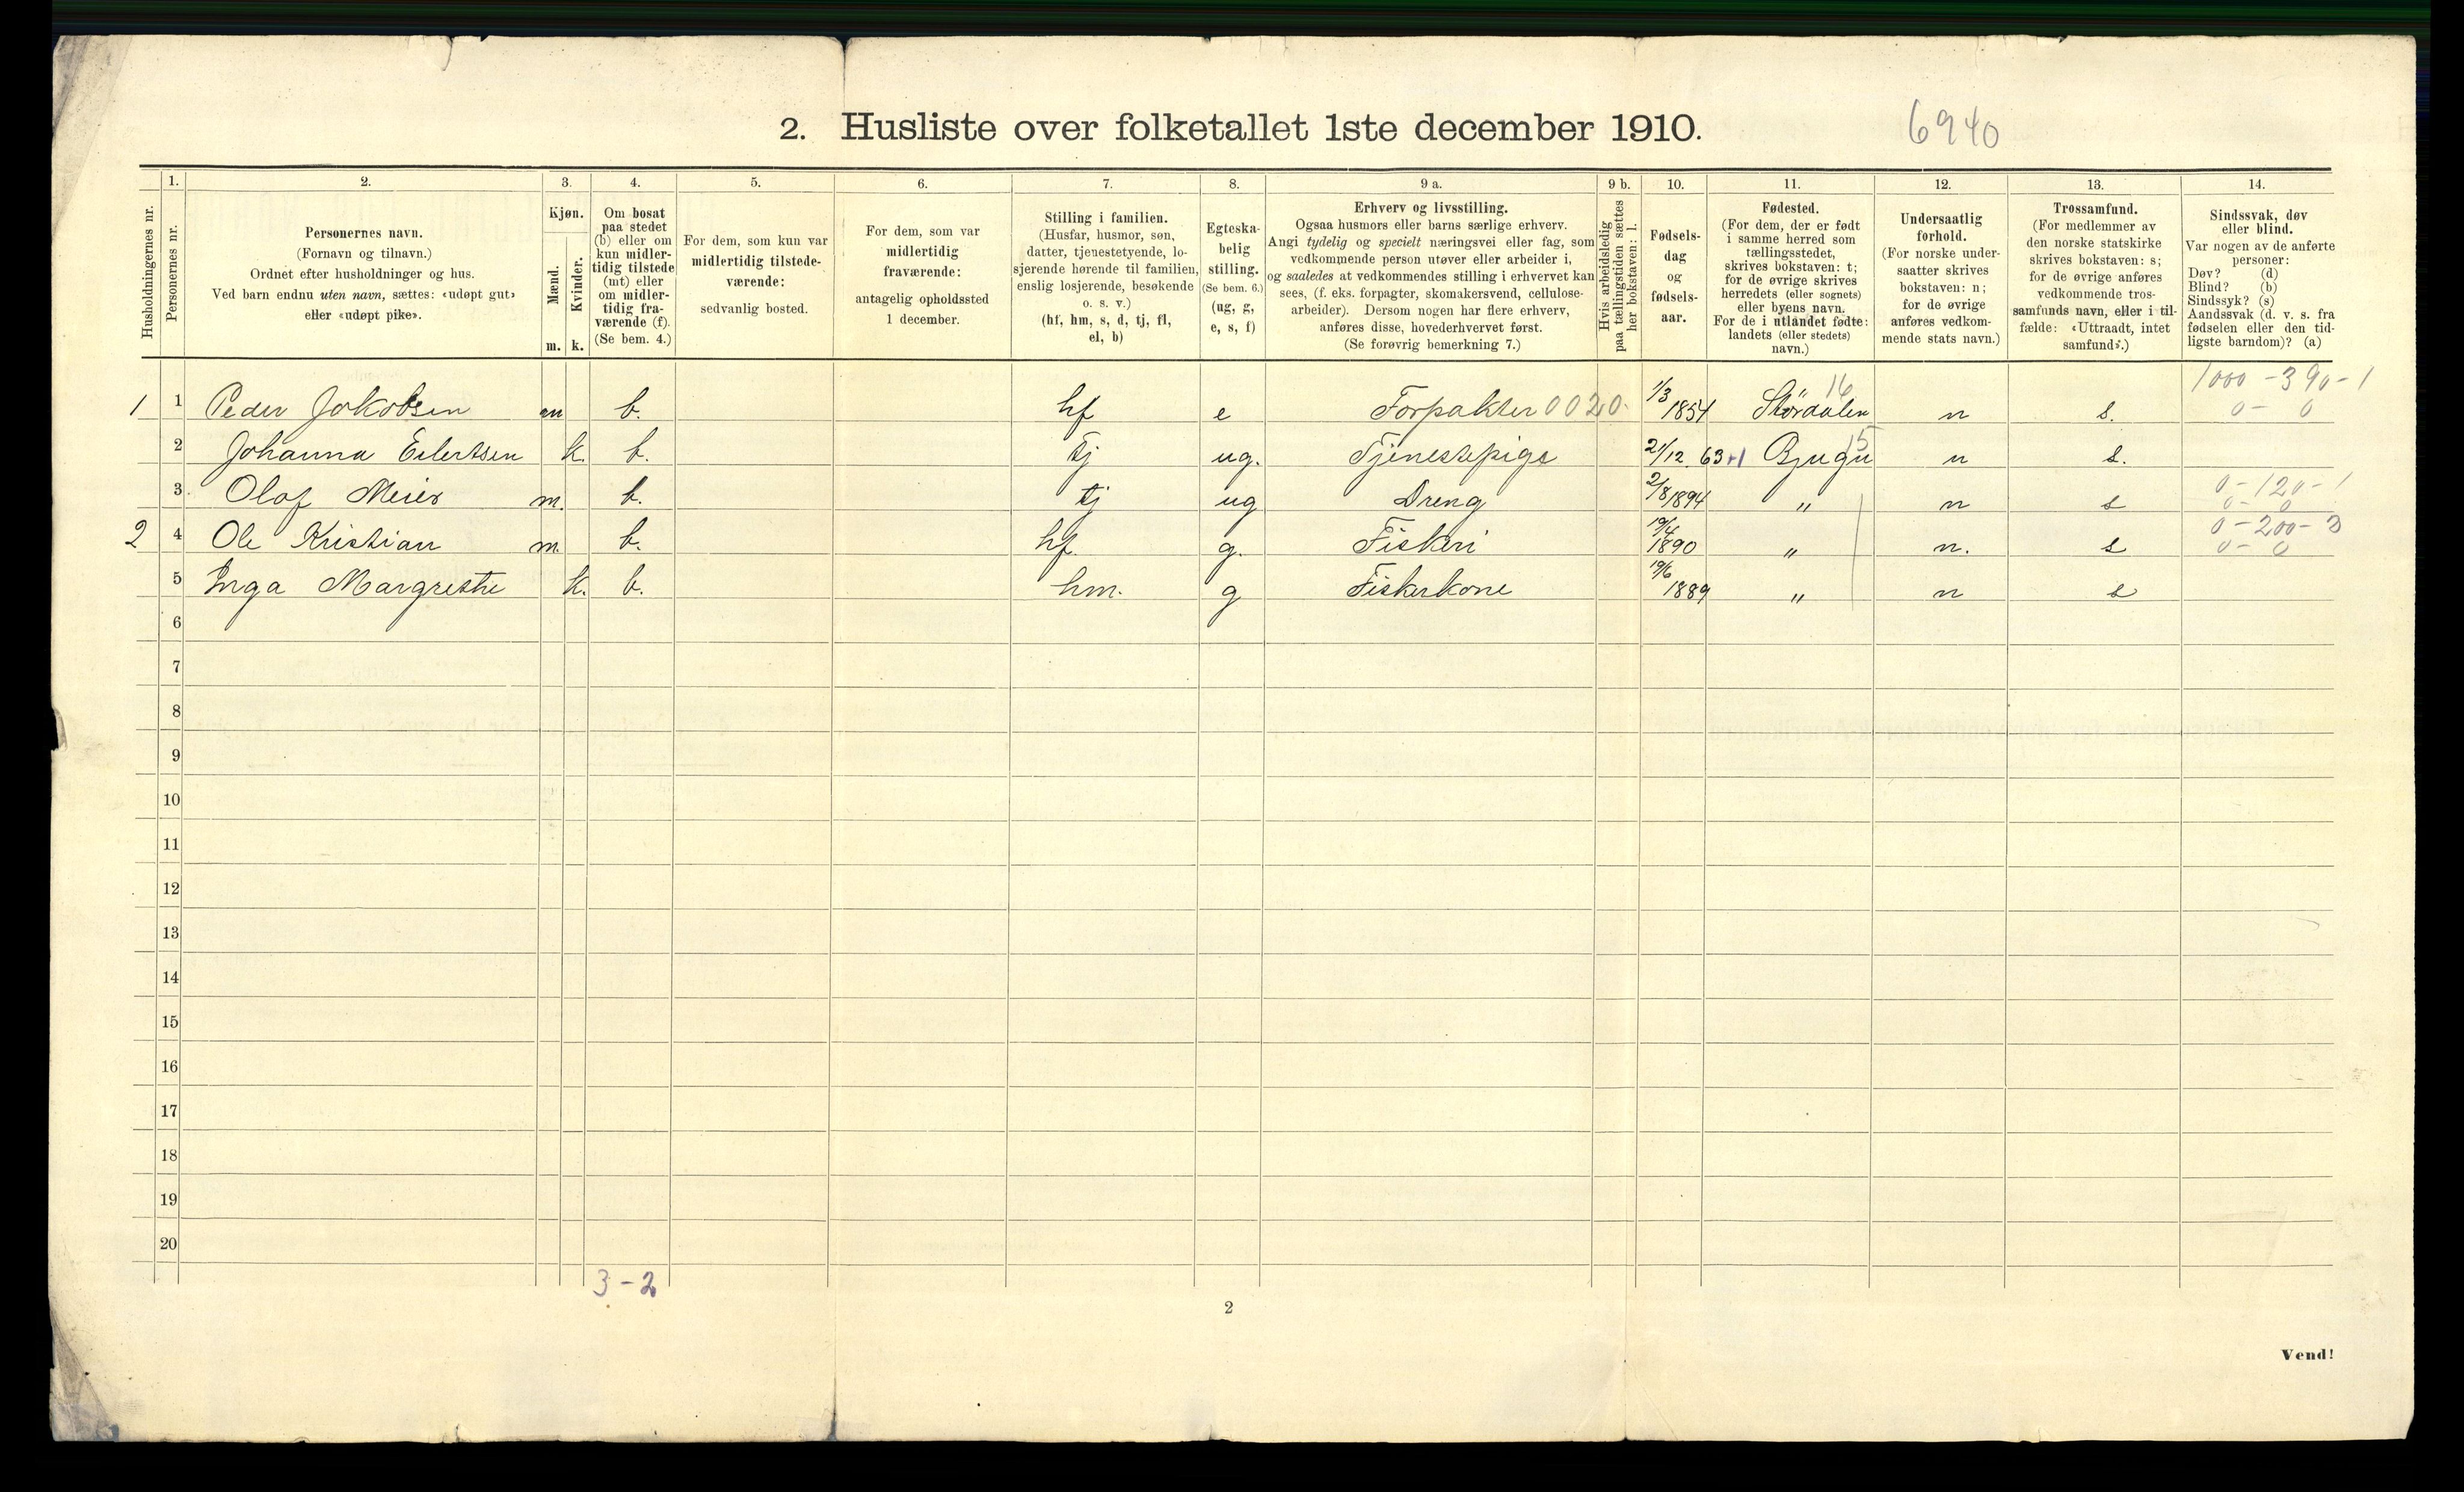 2. Husliste over folketallet 1ste december 1910.
6940
Husholdningernes nr.
1.
Personernes nr.
2.
Personernes navn.
(Fornavn og tilnavn.)
Ordnet efter husholdninger og hus.
Ved barn endnu uten navn, sættes: «udøpt gut»
eller «udøpt pike».
3.
Kjøn.
Mænd.
Kvinder.
m. k.
4.
Om bosat
paa stedet
(b) eller om
kun midler-
tidig tilstede
(mt) eller
om midler-
tidig fra-
værende (f).
(Se bem. 4.)
5.
For dem, som kun var
midlertidig tilstede-
værende:
sedvanlig bosted.
6.
For dem, som var
midlertidig
fraværende:
antagelig opholdssted
1 december.
7.
Stilling i familien.
(Husfar, husmor, søn,
datter, tjenestetyende, lo-
sjerende hørende til familien,
enslig losjerende, besøkende
o. s. v.)
(hf, hm, s, d, tj, fl,
el, b)
8.
Egteska-
belig
stilling.
(Se bem. 6.)
(ug, g,
e, s, f)
9 a.
Erhverv og livsstilling.
Ogsaa husmors eller barns særlige erhverv.
Angi tydelig og specielt næringsvei eller fag, som
vedkommende person utøver eller arbeider i,
og saaledes at vedkommendes stilling i erhvervet kan
sees, (f. eks. forpagter, skomakersvend, cellulose-
arbeider). Dersom nogen har flere erhverv,
anføres disse, hovederhvervet først.
(Se forøvrig bemerkning 7.)
9 b.
Hvis arbeidsledig
paa tællingstiden sættes
her bokstaven: l.
10.
Fødsels-
dag
og
fødsels-
aar.
11.
Fødested.
(For dem, der er født
i samme herred som
tællingsstedet,
skrives bokstaven: t;
for de øvrige skrives
herredets (eller sognets)
eller byens navn.
For de i utlandet fødte:
landets (eller stedets)
navn.)
12.
Undersaatlig
forhold.
(For norske under-
saatter skrives
bokstaven: n;
for de øvrige
anføres vedkom-
mende stats navn.)
13.
Trossamfund.
(For medlemmer av
den norske statskirke
skrives bokstaven: s;
for de øvrige anføres
vedkommende tros-
samfunds navn, eller i til-
fælde: «Uttraadt, intet
samfund».)
14.
Sindssvak, døv
eller blind.
Var nogen av de anførte
personer:
Døv? (d)
Blind? (b)
Sindssyk? (s)
Aandssvak (d. v. s. fra
fødselen eller den tid-
ligste barndom)? (a)
1000 - 390 - 1
1 1 Peder Jakobsen m b. hf e Forpakter 0020 1/3 1854 Størdalen 16 n s. 0 - 0
2 Johanna Eilertsen k. b. tj ug. Tjenestepige 21/12 63 +1 Bjugn 15 n s.
0 - 120 - 1
3 Olaf Meier m. b. tj ug Dreng 2/8 1894 " n s 0 - 0
0 - 200 - 3
2 4 Ole Kristian m b. hf. g. Fiskeri 19/4 1890 " n. s 0 - 0
5 Inga Margrethe k. b. hm. g Fiskerkone 19/6 1889 " n s
6
7
8
9
10
11
12
13
14
15
16
17
18
19
20
3 - 2
2
Vend!